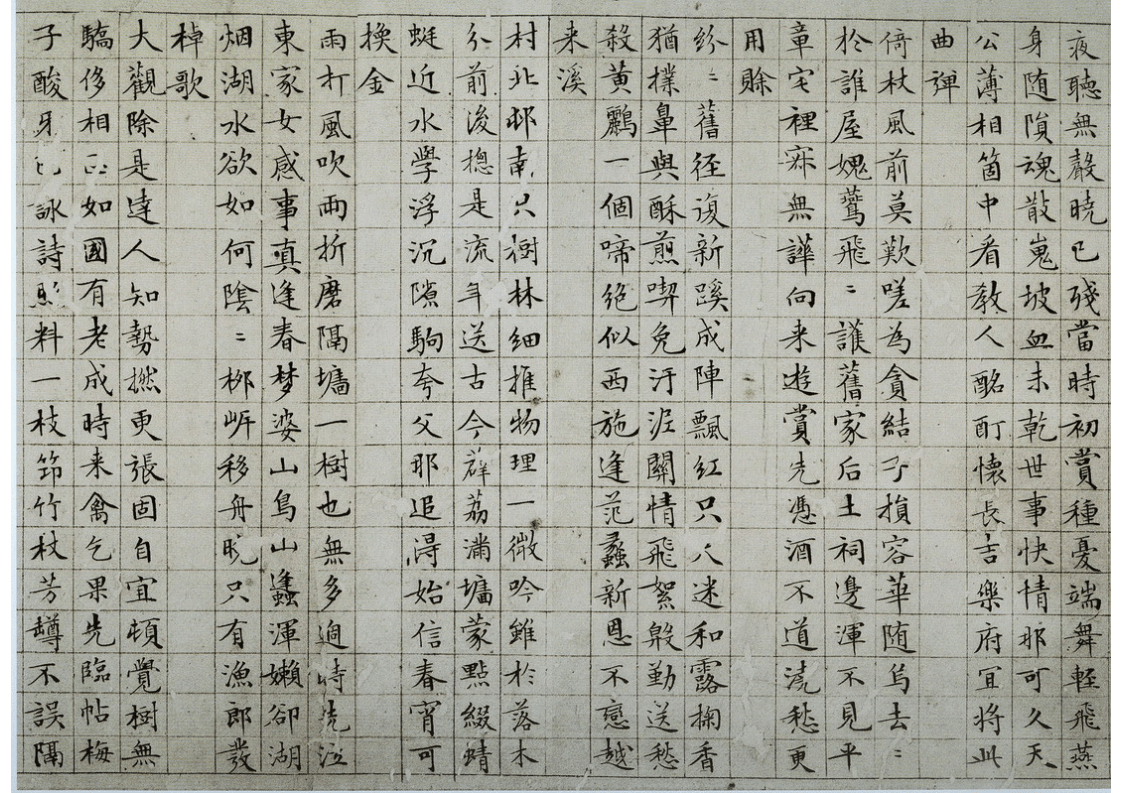 夜聽無聲曉已殘當時初賞種憂端舞輕飛燕
身随隕魂散嵬坡血未乾世事快情那可久天
公薄相箇中看教人酩酊懷長吉樂府宜将此
曲彈
倚杖風前莫歎嗟為貪結子損容華随烏去〻
於誰屋媿鶯飛〻護舊家后土祠邊渾不見平
章宅裡寂無譁向来遊賞先憑酒不道澆愁更
用賒
紛〻舊径復新蹊成陣飄紅只人迷和露掬香
猶撲鼻與酥煎喫免汙泥關情飛絮殷勤送愁
殺黄鸝一個啼絶似西施逢范蠡新恩不戀越
来溪
村北邨南只樹林細推物理一微吟雖於落木
分前後揔是流年送古今群荔滿墉蒙點綴蜻
蜓近水學浮沉隙駒夸父那追得始信春宵可
換金
雨打風吹兩折磨隔墉一樹也無多迴時
東家女感事真逢春梦婆山鳥山蠭渾嬾卻湖
烟湖水欲如何陰〻栁岍移舟晚只有漁郎發
棹歌
大觀除是達人知勢撚更張固自宜頓覺樹無
驕侈相正如國有老成時来禽乞果先臨帖梅
子酸牙詠詩料一枝笻竹杖芳罇不誤隔